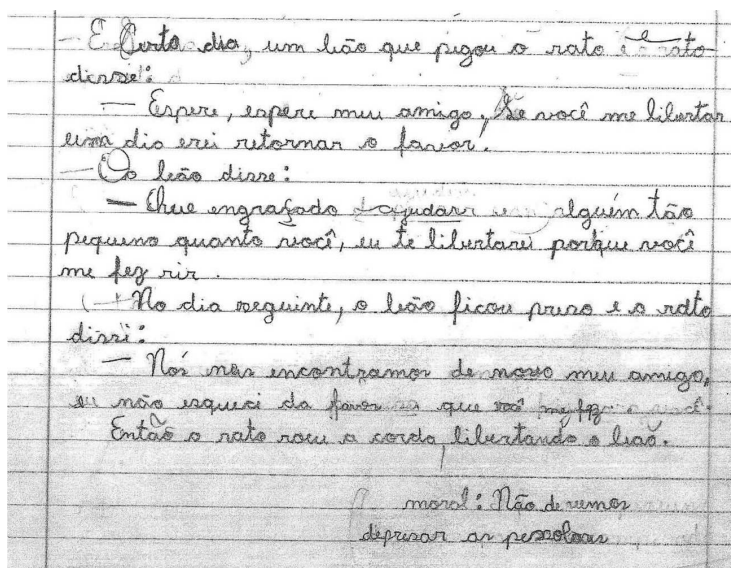 — E Certo dia, um leão que pegou o rato e rato
disse:
— Espere, espere meu amigo, se você me libertar
um dia erei retornar o favor.
— O leão disse:
— Que engrafado ajudarr alguém tão
pequeno quanto você, eu te libertarei porque você
me fez rir.
— No dia seguinte, o leão ficou preso e o rato
dissi:
— Nós nos encontramos de novo meu amigo,
eu não esqueci da favor que você me fez
Então o rato roeu a corda, libertando o leão.
moral: Não devemos
depresar as pessoas